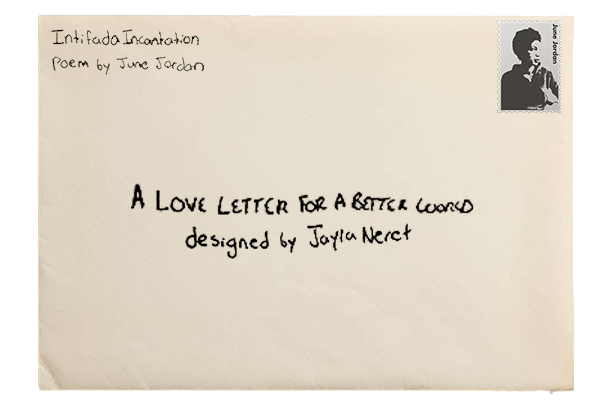 Intifada Incantation
Poem by June Jordan
June Jordan
A LOVE LETTER FOR A BETTER WORLD
designed by Jayla Neret